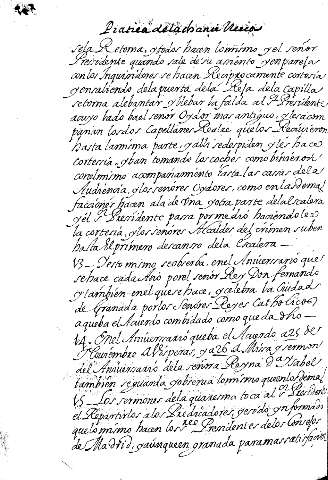 Pratica de la chancilleria
se la Retoma, y todos hacen lo mismo y el señor
Presidente quando sale de su asiento y en pareja
con los Inquisidores se hacen Reciprocamente cortesia
y en saliendo de la puerta de la Reja de la Capilla
se torna alebantar, y llebar la falda al Sr. Presidente
a cuyo lado ba el señor Oydor mas antiguo, y les acom
pañan los dos Capellanes Reales que los Recivieron
hasta la misma parte, y alli se despiden y les hace
cortesia, y ban tomando los coches como binieron
con el mismo acompañamiento hasta las casas de la
Audiencia, y los señores Oydores, como en las demas
facciones hacen ala de una, y otra parte de la escalera
y el Sr. Presidente pasa por medio haciendoles
la cortesia, y los señores Alcaldes del crimen suben
hasta el primero descanso de la Escalera —
V3 — Y esto mismo se observa en el Aniversario que
se hace cada año por el señor Rey Don fernando
y tambien en el que se hace, y celebra la Ciudad
de Granada por los Señores Reyes Catholicos
a que ba el Acuerdo combidado como queda dho —
V4. En el Aniversario que ba el Acuerdo a 25 de
Noviembre a Visperas, y a 26 a Misa, y sermon
del Aniversario de la señora Reyna Dª Ysabel
tambien se guarda y observa lo mismo que en los demas
V5 — Los sermones de la quaresma toca al Sr. Presidente
el Repartirlos a los Predicadores, y es ido informado
que lo mismo hacen los sres Presidentes de los Consejos
de Madrid, y aunque en granada para mas satisfacion